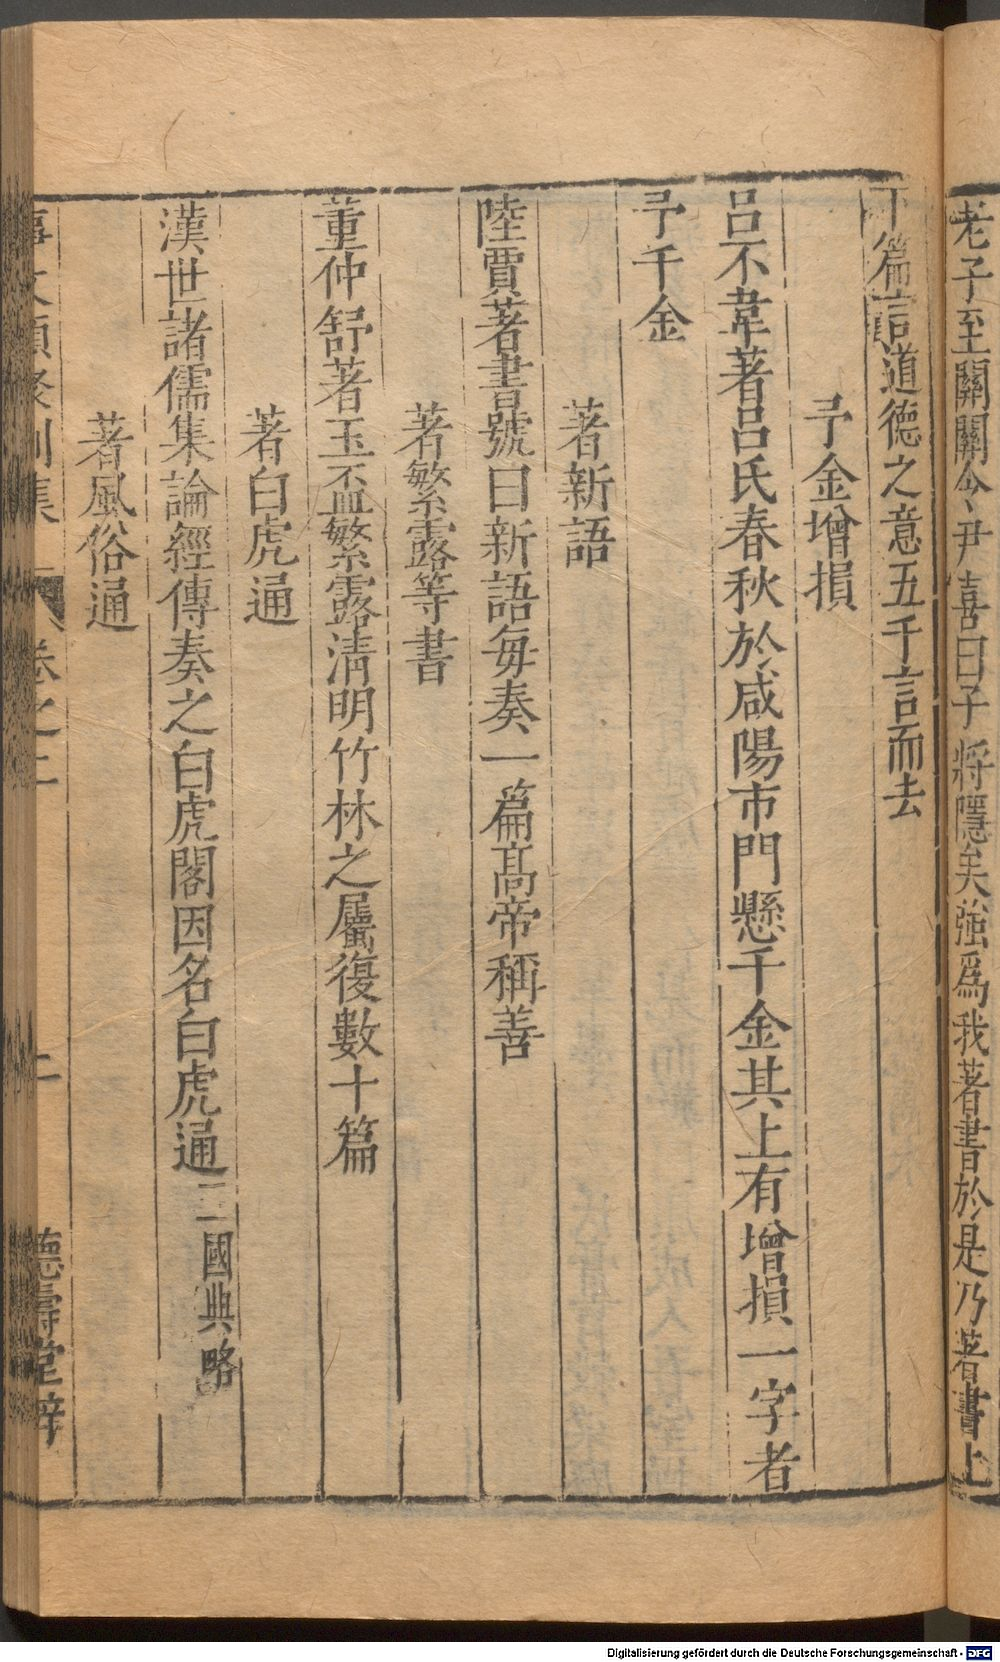 老子至關關令尹喜曰子將隱矣強爲我著書於是乃著書上
下篇言道德之意五千言而去
予金增損
呂不韋著呂氏春秋於咸陽市門懸千金其上有增損一字者
予千金
著新語
陸賈著書號曰新語每奏一篇高帝稱善
著繁露等書
董仲舒著玉盃繁露清明竹林之屬復數十篇
著白虎通
漢世諸儒集論經傳奏之白虎閣因名白虎通三國典略
著風俗通
事文類聚別集 卷之二 二 德壽堂梓
Digitalisierung gefördert durch die Deutsche Forschungsgemeinschaft - DFG